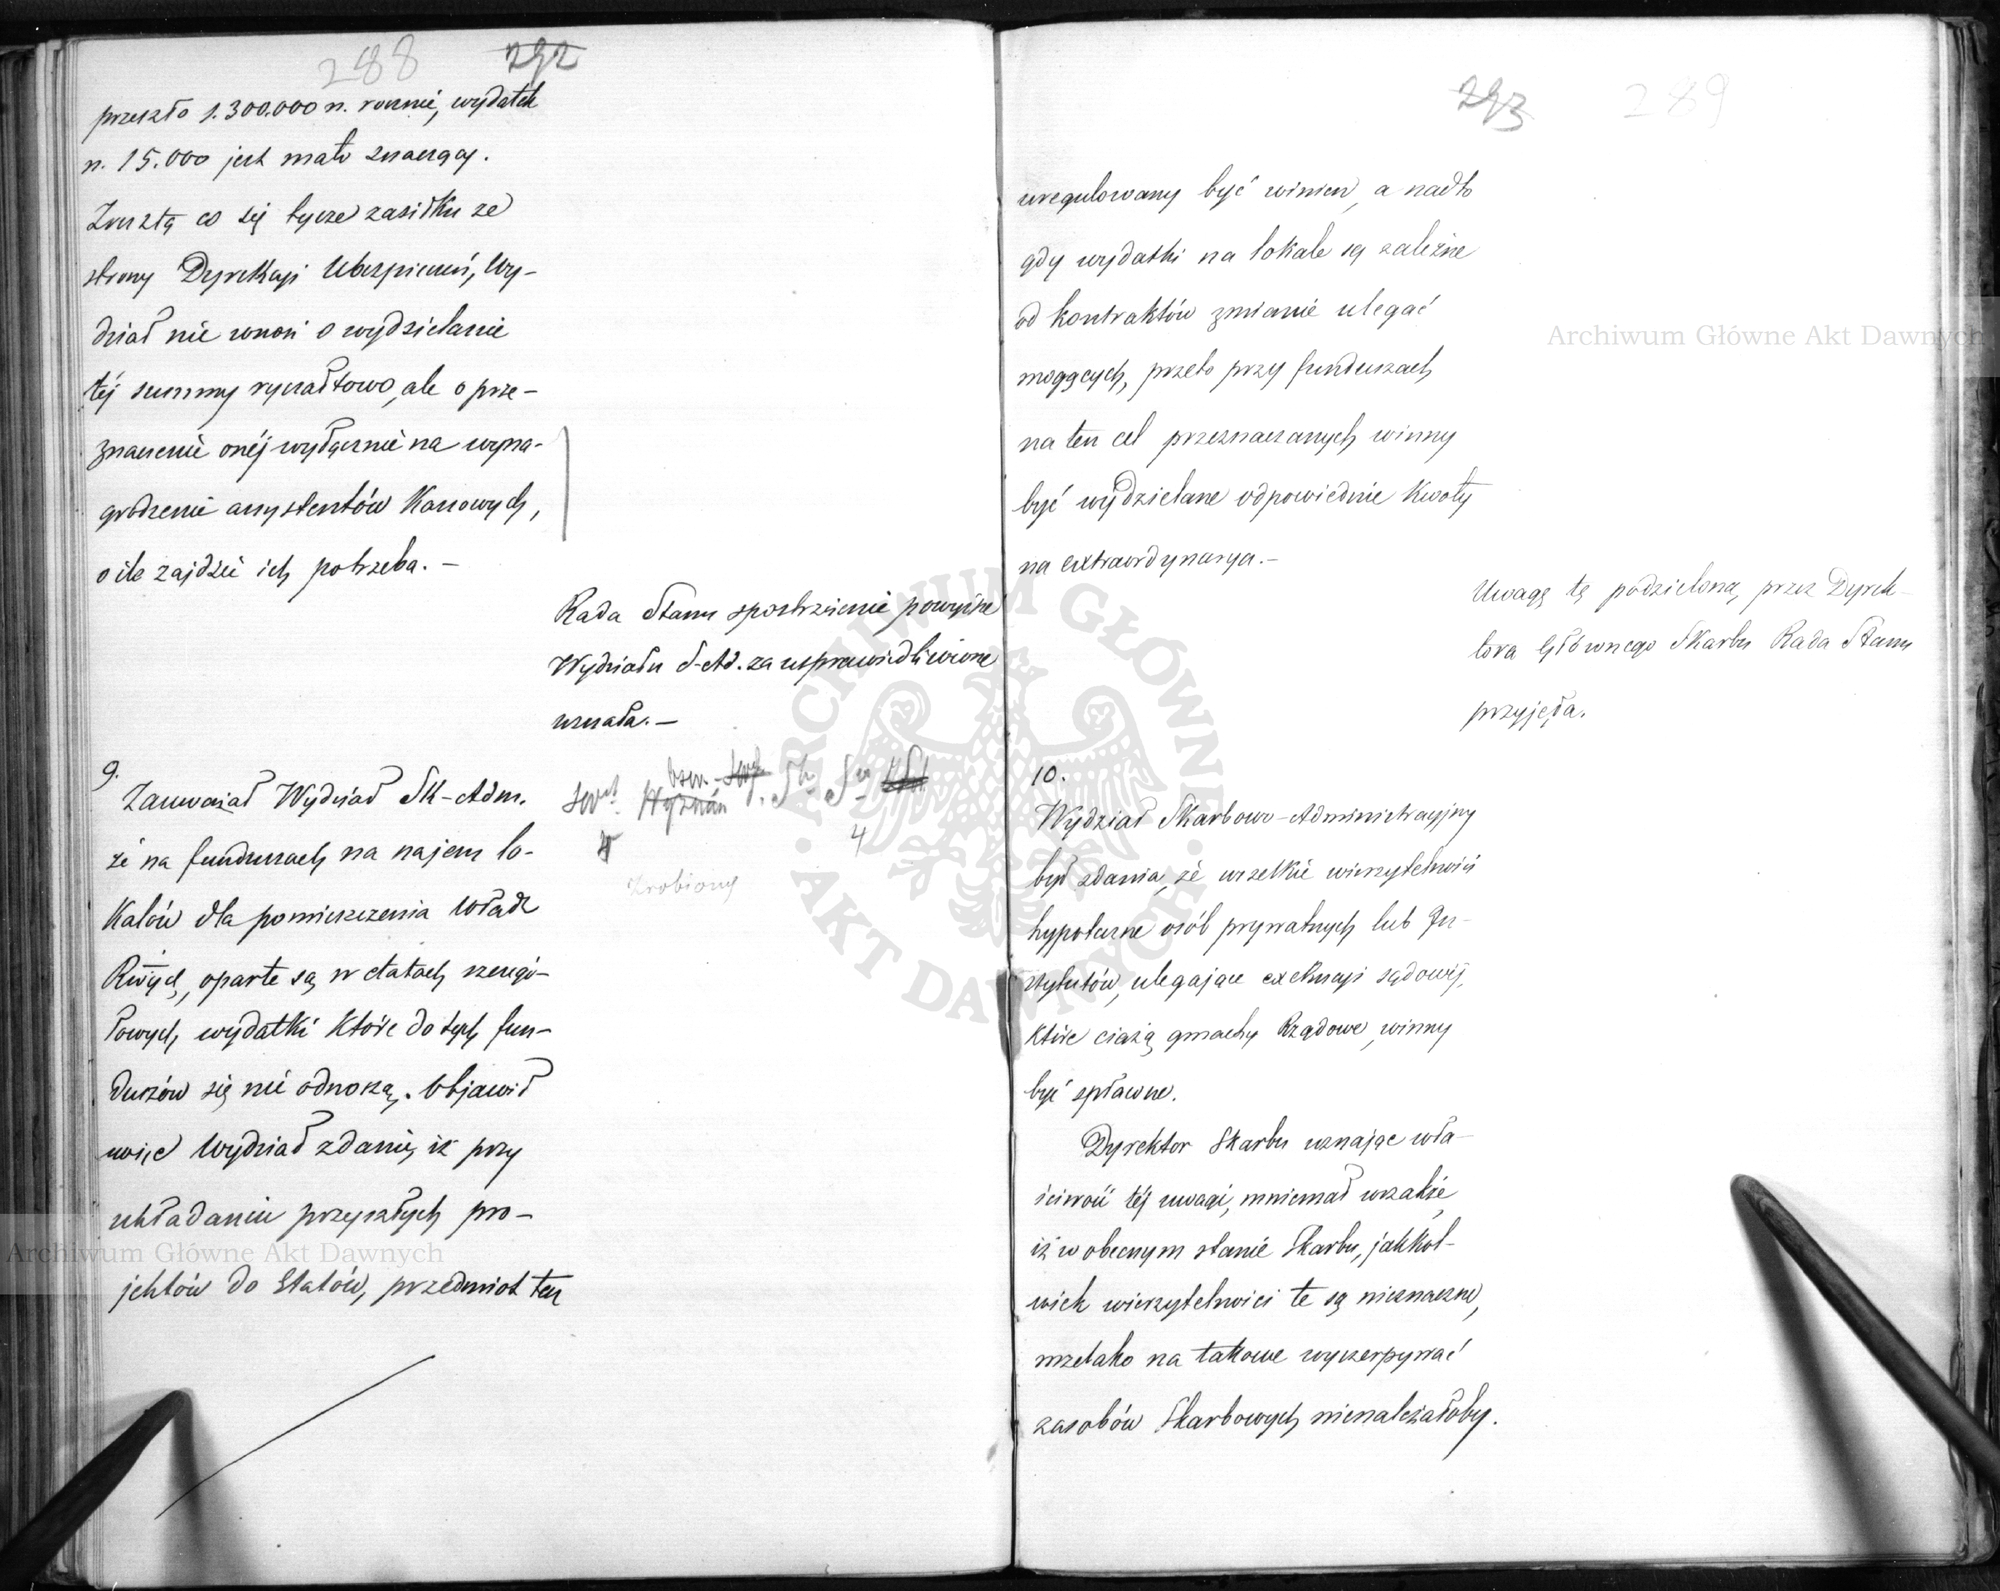 288 292
przeszło 1.300.000 n. rocznie, wydatek
n. 15.000 jest mało znaczący.
Zresztą co się tycze zasiłku ze
strony Dyrekcyi Ubezpieczeń, Wy-
dział nie wnosi o wydzielanie
téj summy ryczałtowo, ale o prze-
znaczenie onéj wyłącznie na wyna-
grodzenie assystentów Kassowych,
o ile zajdzie ich potrzeba. —
Rada Stanu spostrzeżenie powyższe
Wydziału S-Ad. za usprawiedliwione
uznała. —
9.
Zauważał Wydział Sk-Adm.
że na funduszach na najem lo-
kalów dla pomieszczenia Władz
Rwych, oparte są w etatach szczegó-
łowych, wydatki które do tych fun-
duszów się nie odnoszą. Objawił
więc Wydział zdanie, iż przy
układaniu przyszłych pro-
jektów do Etatów, przedmiot ten
4
Zrobiony
293 289
uregulowany być winien, a nadto
gdy wydatki na lokale są zależne
od kontraktów zmianie ulegać
mogących, przeto przy funduszach
na ten cel przeznaczanych winny
być wydzielane odpowiednie kwoty
na extraordynarya. —
Uwagę tę podzieloną przez Dyrek-
tora Głównego Skarbu Rada Stanu
przyjęła.
10.
Wydział Skarbowo-Administracyjny
był zdania, że wszelkie wierzytelności
hypoteczne osób prywatnych lub In-
stytutów, ulegające exekucyi sądowéj,
które ciążą gmachy Rządowe, winny
być spławne.
Dyrektor Skarbu uznając wła-
ściwość téj uwagi, mniemał wszakże,
iż w obecnym stanie Skarbu, jakkol-
wiek wierzytelności te są nieznaczne,
wszelako na takowe wyczerpywać
zasobów Skarbowych nienależałoby.
Archiwum Główne Akt Dawnych
Archiwum Główne Akt Dawnych
ARCHIWUM GŁÓWNE AKT DAWNYCH